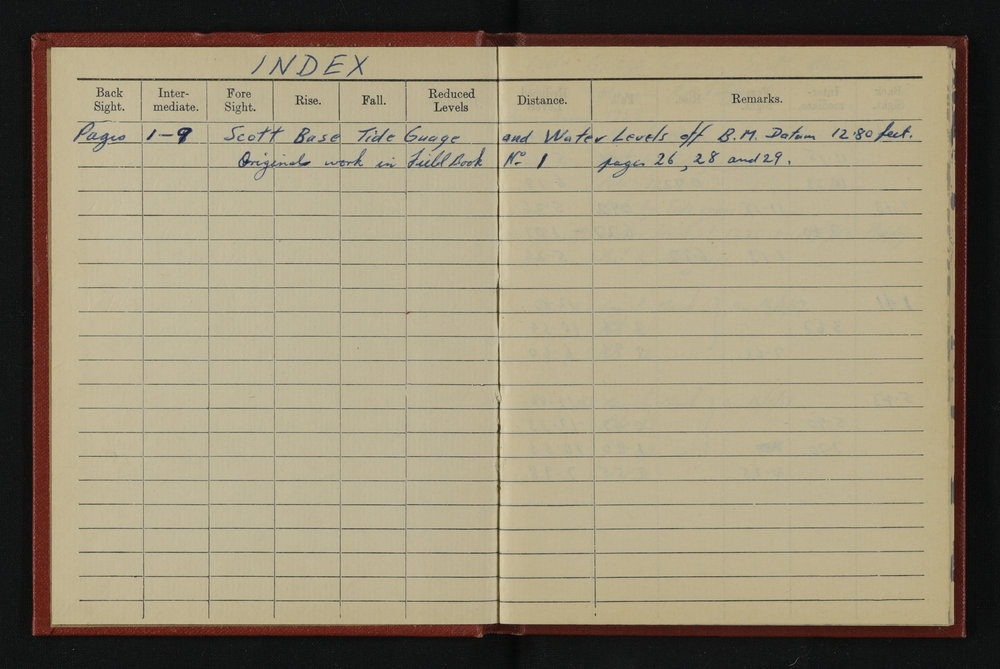 INDEX
Back Sight. Inter- mediate. Fore Sight. Rise. Fall. Reduced Levels Distance. Remarks.
Pages 1-9 Scott Base Tide Guage and Water Levels off B.M. Datum 12.80 feet.
Originals work in Field Book No 1 pages 26, 28 and 29.